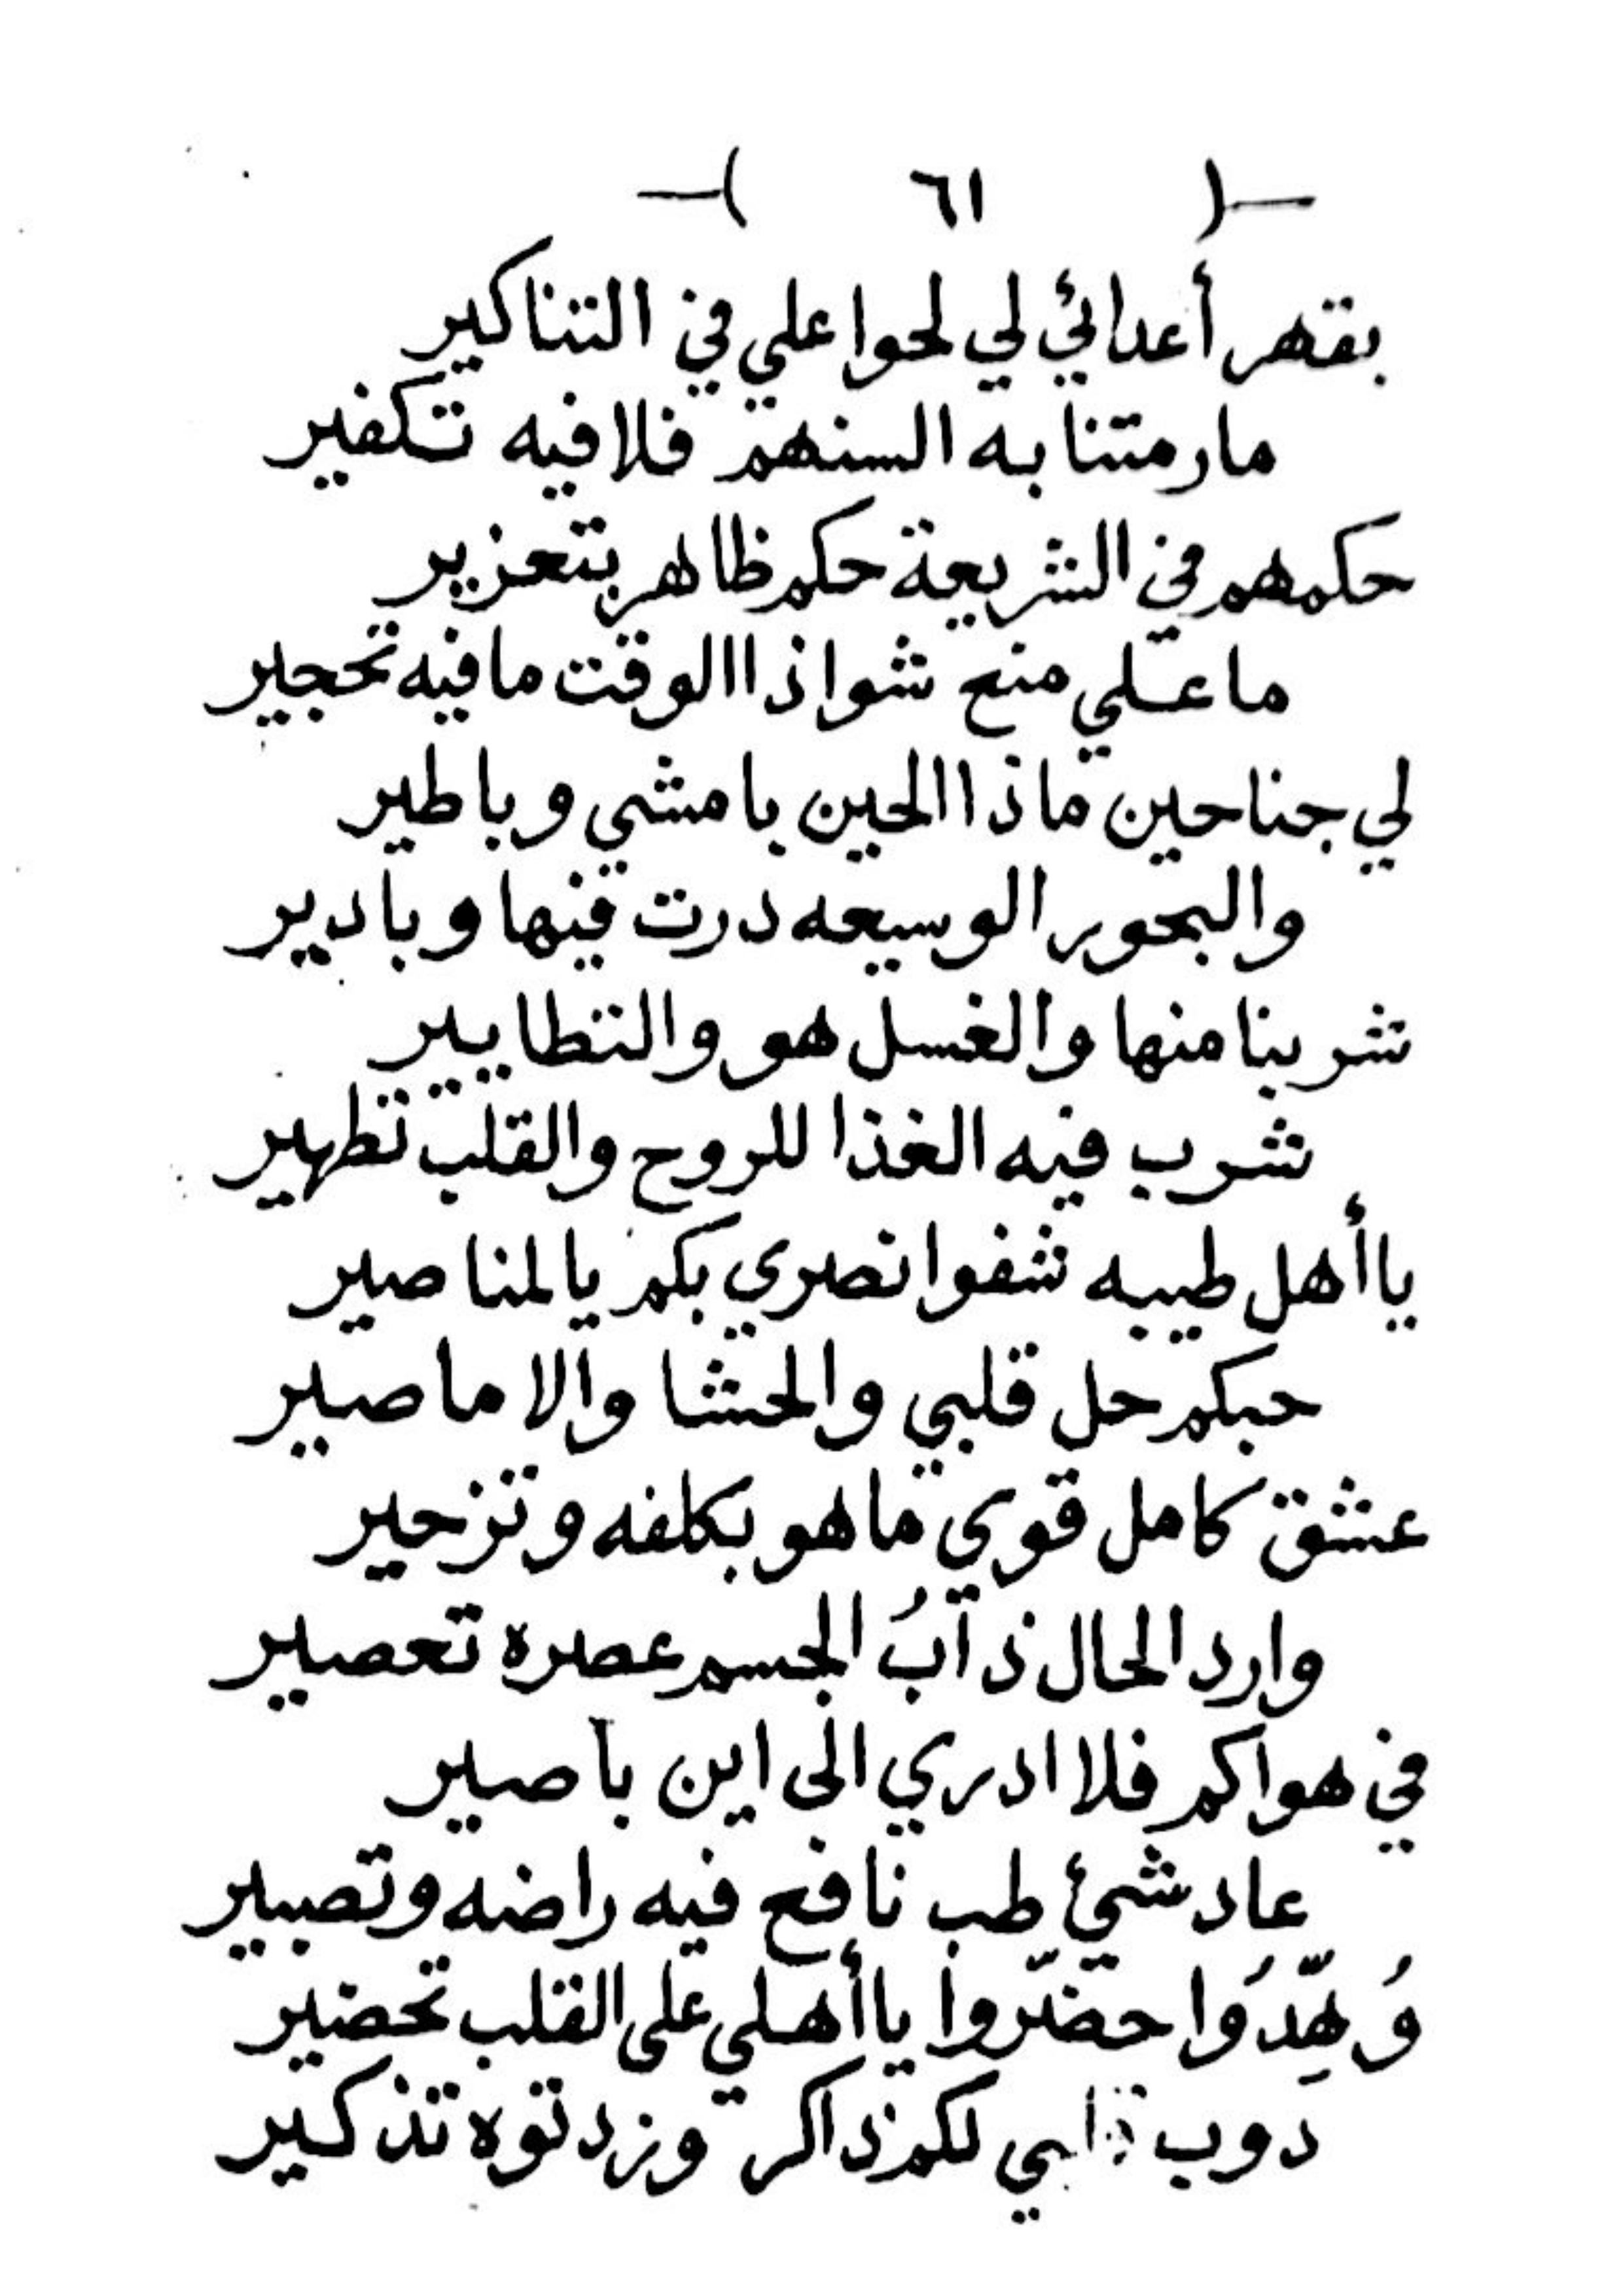 —( ٦١ )—
بقهر أعدائي لي لحوا علي في التناكير
مارمتنا به السنهم فلا فيه تكفير
حكمهم في الشريعة حكم ظاهر بتعزير
ما علي منع شوا ذا الوقت ما فيه تحجير
لي جناحين ما ذا الحين با مشي وباطير
والبحور الوسيعه درت فيها وبادير
شربنا منها والغسل هو والتطايير
شرب فيه الغذا للروح والقلب تطهير
يا أهل طيبه شفوا نصري بكم يالمناصير
حبكم حل قلبي والحشا والا ماصير
عشق كامل قوي ما هو بكلفه وتزحير
وارد الحال ذابُ الجسم عصره تعصير
في هواكم فلا ادري الى اين با صير
عاد شئ طب نافع فيه راضه وتصبير
وُهِّدُوا حضّروا يا أهلي على القلب تحضير
دوب لكم ذاكر وزدتوه تذكير